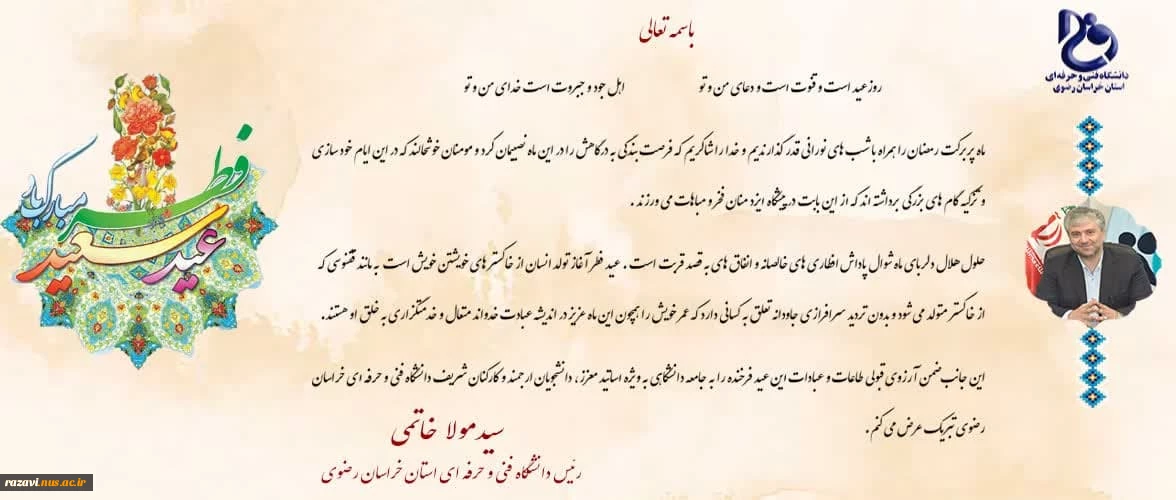 باسمه تعالی
دانشگاه فنی و حرفه‌ای
استان خراسان رضوی
روز عید است و قنوت است و دعای من و تو اهل جود و جبروت است خدای من و تو
ماه پر برکت رمضان را همراه با شب های نورانی قدر گذارندیم و خدا را شاکریم که فرصت بندگی به درگاهش را در این ماه نصیبمان کرد و مومنان خوشحالند که در این ایام خود سازی
و تزکیه گام های بزرگی برداشته اند که از این بابت در پیشگاه ایزد منان فخر و مباهات می ورزند .
حلول هلال دلربای ماه شوال پاداش افطاری های خالصانه و انفاق های به قصد قربت است . عید فطر آغاز تولد انسان از خاکسترهای خویشتن خویش است به مانند ققنوسی که
از خاکستر متولد می شود و بدون تردید سرافرازی جاودانه تعلق به کسانی دارد که عمر خویش را همچون این ماه عزیز در اندیشه عبادت خداوند متعال و خدمتگزاری به خلق او هستند.
این جانب ضمن آرزوی قبولی طاعات و عبادات این عید فرخنده را به جامعه دانشگاهی به ویژه اساتید معزز ، دانشجویان ارجمند و کارکنان شریف دانشگاه فنی و حرفه ای خراسان
رضوی تبریک عرض می کنم .
سید مولا خاتمی
رئیس دانشگاه فنی و حرفه ای استان خراسان رضوی
عید سعید
فطر
مبارک باد
razavi.nus.ac.ir